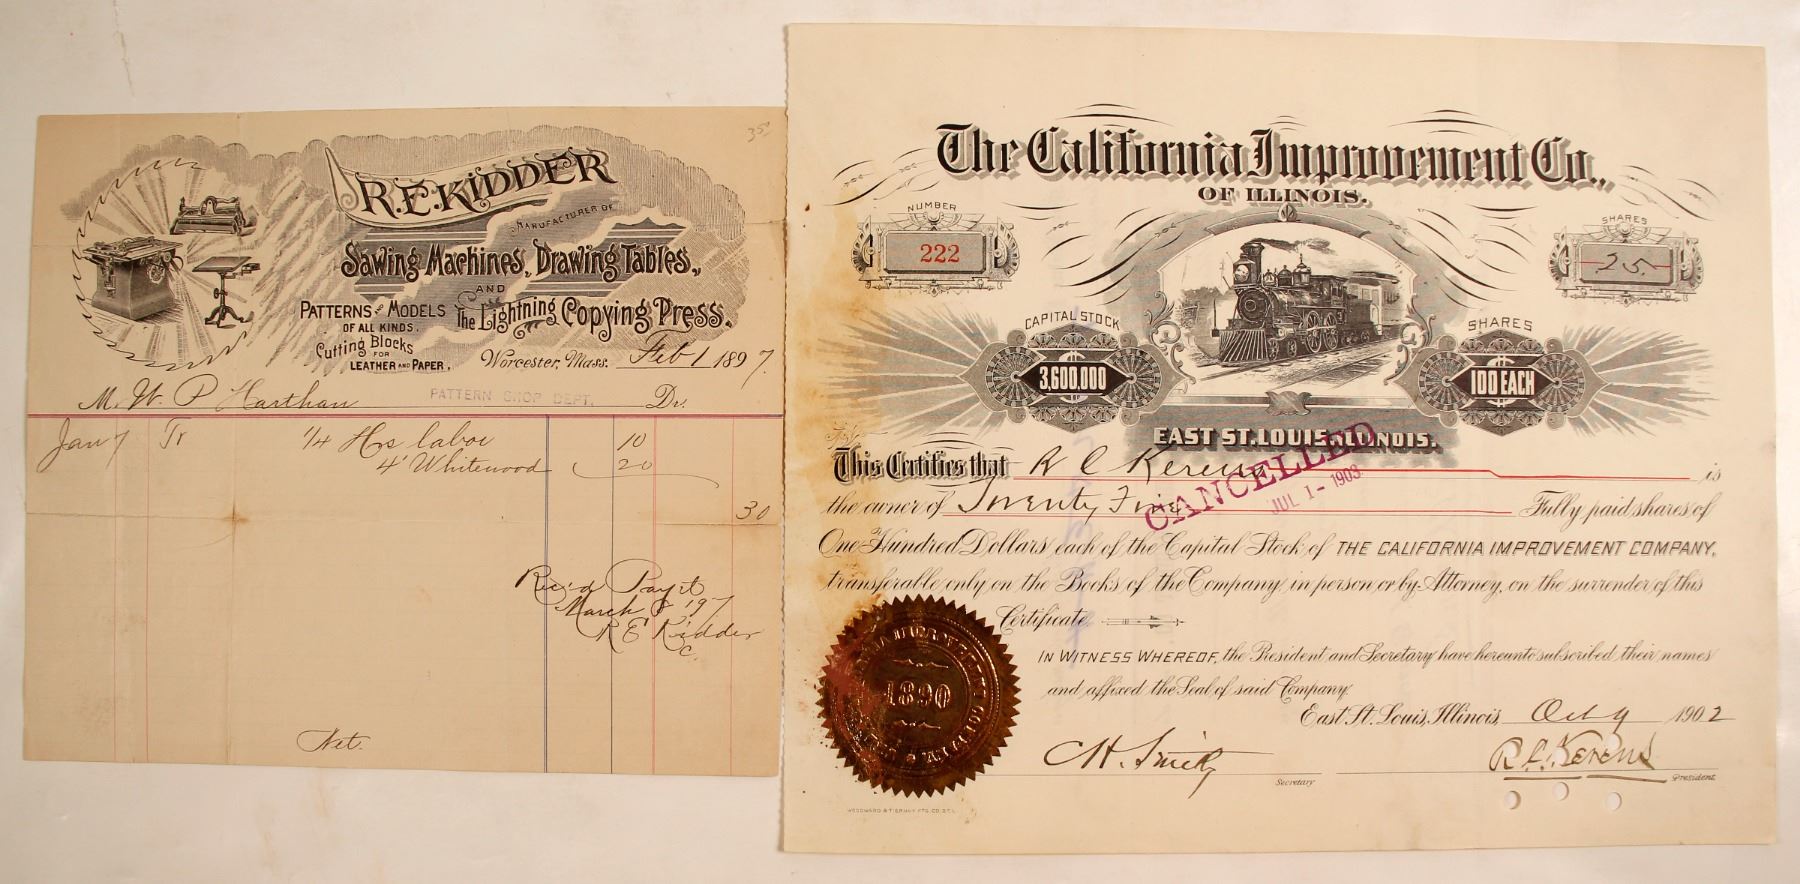 35
R.E. KIDDER
MANUFACTURER OF
Sawing Machines, Drawing Tables,
AND
PATTERNS AND MODELS
OF ALL KINDS.
The Lightning Copying Press.
Cutting Blocks
FOR
LEATHER AND PAPER.
Worcester, Mass. Feb 1 1897.
M. W. P. Harthan
PATTERN SHOP DEPT.
Dr.
Jan 7 Tr 1/4 Hrs labor 10
4' Whitewood 20
30
Rec'd Pay't
March 8 '97
R E Kidder
C.
Net.
The California Improvement Co.,
OF ILLINOIS.
NUMBER
222
SHARES
25.
CAPITAL STOCK
3,600,000
SHARES
100 EACH
EAST ST. LOUIS, ILLINOIS.
This Certifies that R C Kerens is
the owner of Twenty Five Fully paid shares of
CANCELLED
JUL 1 - 1903
One Hundred Dollars each of the Capital Stock of THE CALIFORNIA IMPROVEMENT COMPANY,
transferable only on the Books of the Company, in person or by Attorney, on the surrender of this
Certificate.
IN WITNESS WHEREOF, the President and Secretary have hereunto subscribed their names
and affixed the Seal of said Company.
East St. Louis, Illinois, Oct 9 1902
1890
C H. Smith
Secretary
R. C. Kerens
President.
WOODWARD & TIERNAN PTG. CO. ST. L.